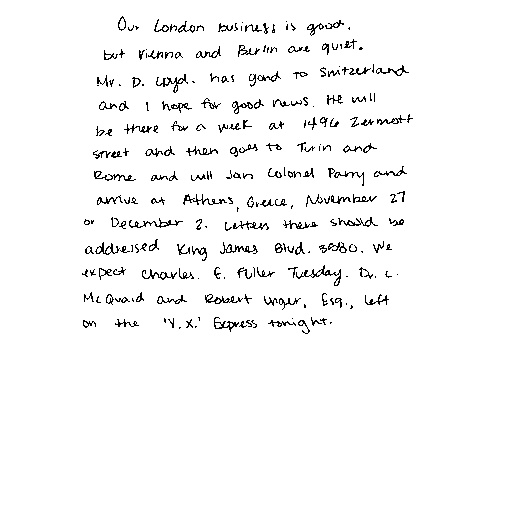 Our London business is good,
but Vienna and Berlin are quiet.
Mr. D. Lloyd. has gond to Switzerland
and I hope for good news. He will
be there for a week at 1496 Zermott
street and then goes to Turin and
Rome and will Join Colonel Parry and
arrive at Athens, Greece, November 27
or December 2. Letters there should be
addressed King James Blvd. 3580. We
expect Charles. E. Fuller Tuesday. Dr. L.
McQuaid and Robert Unger, Esq., left
on the 'Y.X.' Express tonight.